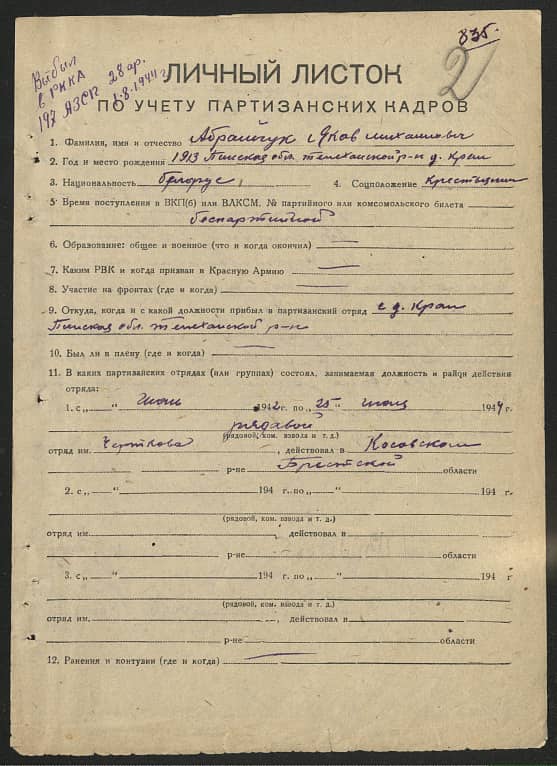 835.
2
Выбыл
в РККА
197 АЗСП 28 ар.
1-8-1944 г
ЛИЧНЫЙ ЛИСТОК
ПО УЧЕТУ ПАРТИЗАНСКИХ КАДРОВ
1. Фамилия, имя и отчество Абрамчук Яков Михайлович
2. Год и место рождения 1913 Пинская обл. Телеханской р-н д. Краи
3. Национальность белорус 4. Соцположение Крестьянин
5 Время поступления в ВКП(б) или ВЛКСМ, № партийного или комсомольского билета
беспартийной
6. Образование: общее и военное (что и когда окончил) —
7. Каким РВК и когда призван в Красную Армию —
8. Участие на фронтах (где и когда) —
9. Откуда, когда и с какой должности прибыл в партизанский отряд с д. Краи
Пинская обл. Телеханской р-н
10. Был ли в плену (где и когда) —
11. В каких партизанских отрядах (или группах) состоял, занимаемая должность и район действия
отряда:
1. с „ “ Июнь 1942 г. по „25“ июля 1944 г.
рядовой
(рядовой, ком. взвода и т. д.)
отряд им. Черткова, действовал в Косовском
р-не Брестской области
2. с „ “ 194 г. по „ “ 194 г.
(рядовой, ком. взвода и т. д.)
отряд им. действовал в
р-не области
3. с „ “ 194 г. по „ “ 194 г
(рядовой, ком. взвода и т. д.)
отряд им. , действовал в
р-не области
12. Ранения и контузии (где и когда) —